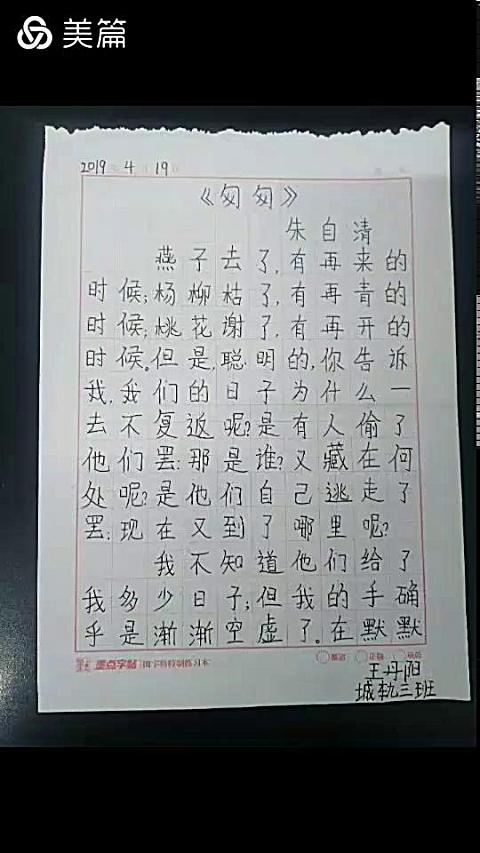 美篇
2019 4 19
《匆匆》
朱自清
燕子去了,有再来的
时候;杨柳枯了,有再青的
时候;桃花谢了,有再开的
时候。但是,聪明的,你告诉
我,我们的日子为什么一
去不复返呢?是有人偷了
他们罢:那是谁?又藏在何
处呢?是他们自己逃走了
罢:现在又到了哪里呢?
我不知道他们给了
我多少日子;但我的手确
乎是渐渐空虚了。在默默
墨点字帖
王丹阳
城轨三班